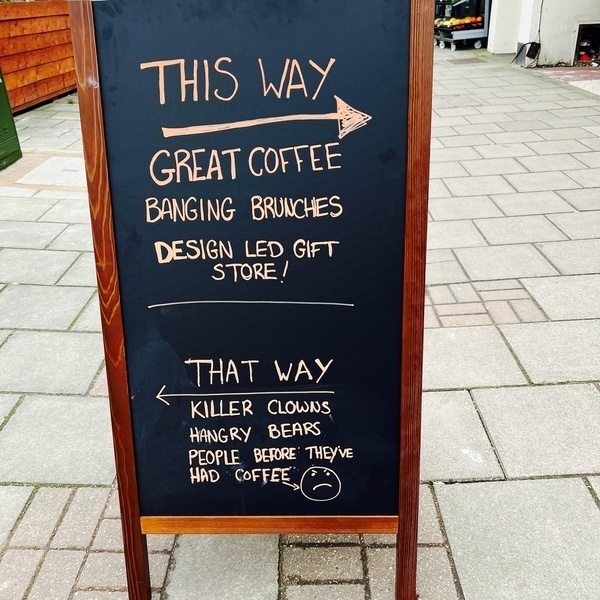 THIS WAY
GREAT COFFEE
BANGING BRUNCHES
DESIGN LED GIFT
STORE!
THAT WAY
KILLER CLOWNS
HANGRY BEARS
PEOPLE BEFORE THEY'VE
HAD COFFEE